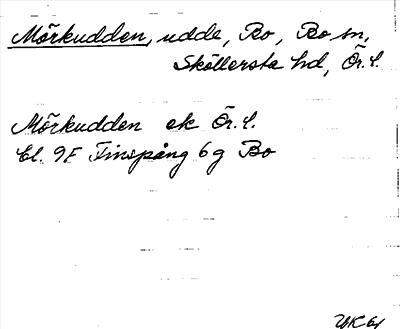 Mörkudden, udde, Bo, Bo sn,
Sköllersta hd, Ör.l.
Mörkudden ek Ör.l.
Bl. 9F Finspång 6g Bo